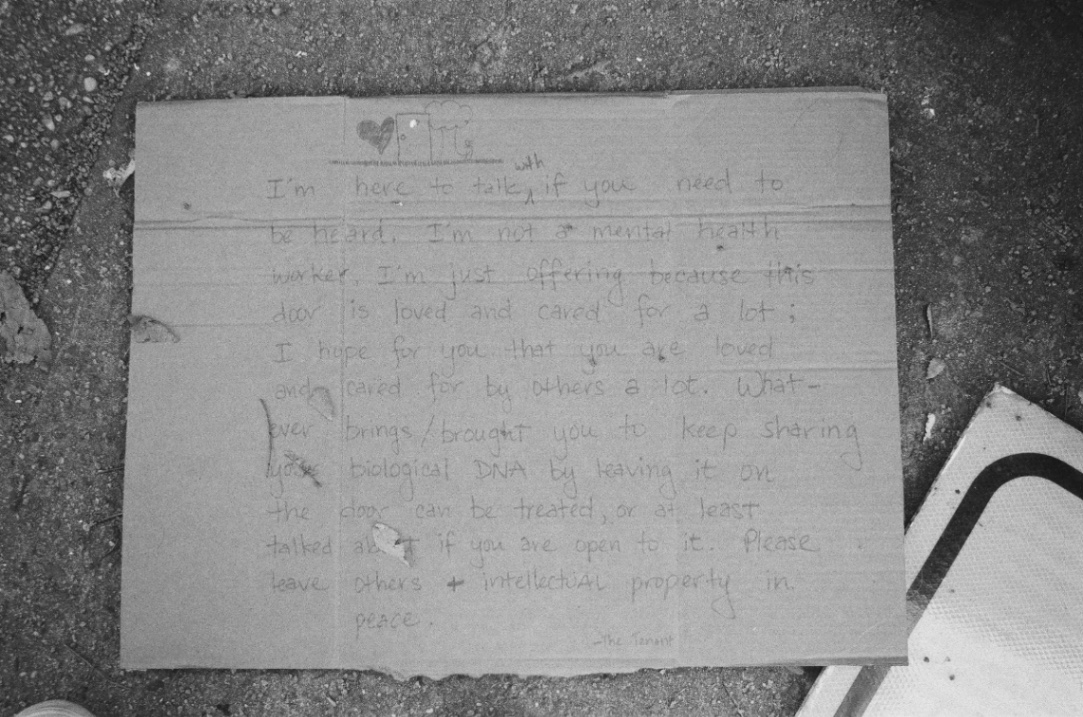 with
I'm here to talk, if you need to
be heard. I'm not a mental health
worker. I'm just offering because this
door is loved and cared for a lot;
I hope for you that you are loved
and cared for by others a lot. What-
ever brings/brought you to keep sharing
your biological DNA by leaving it on
the door can be treated, or at least
talked about if you are open to it. Please
leave others + intellectuAL property in
peace.
-The Tenant